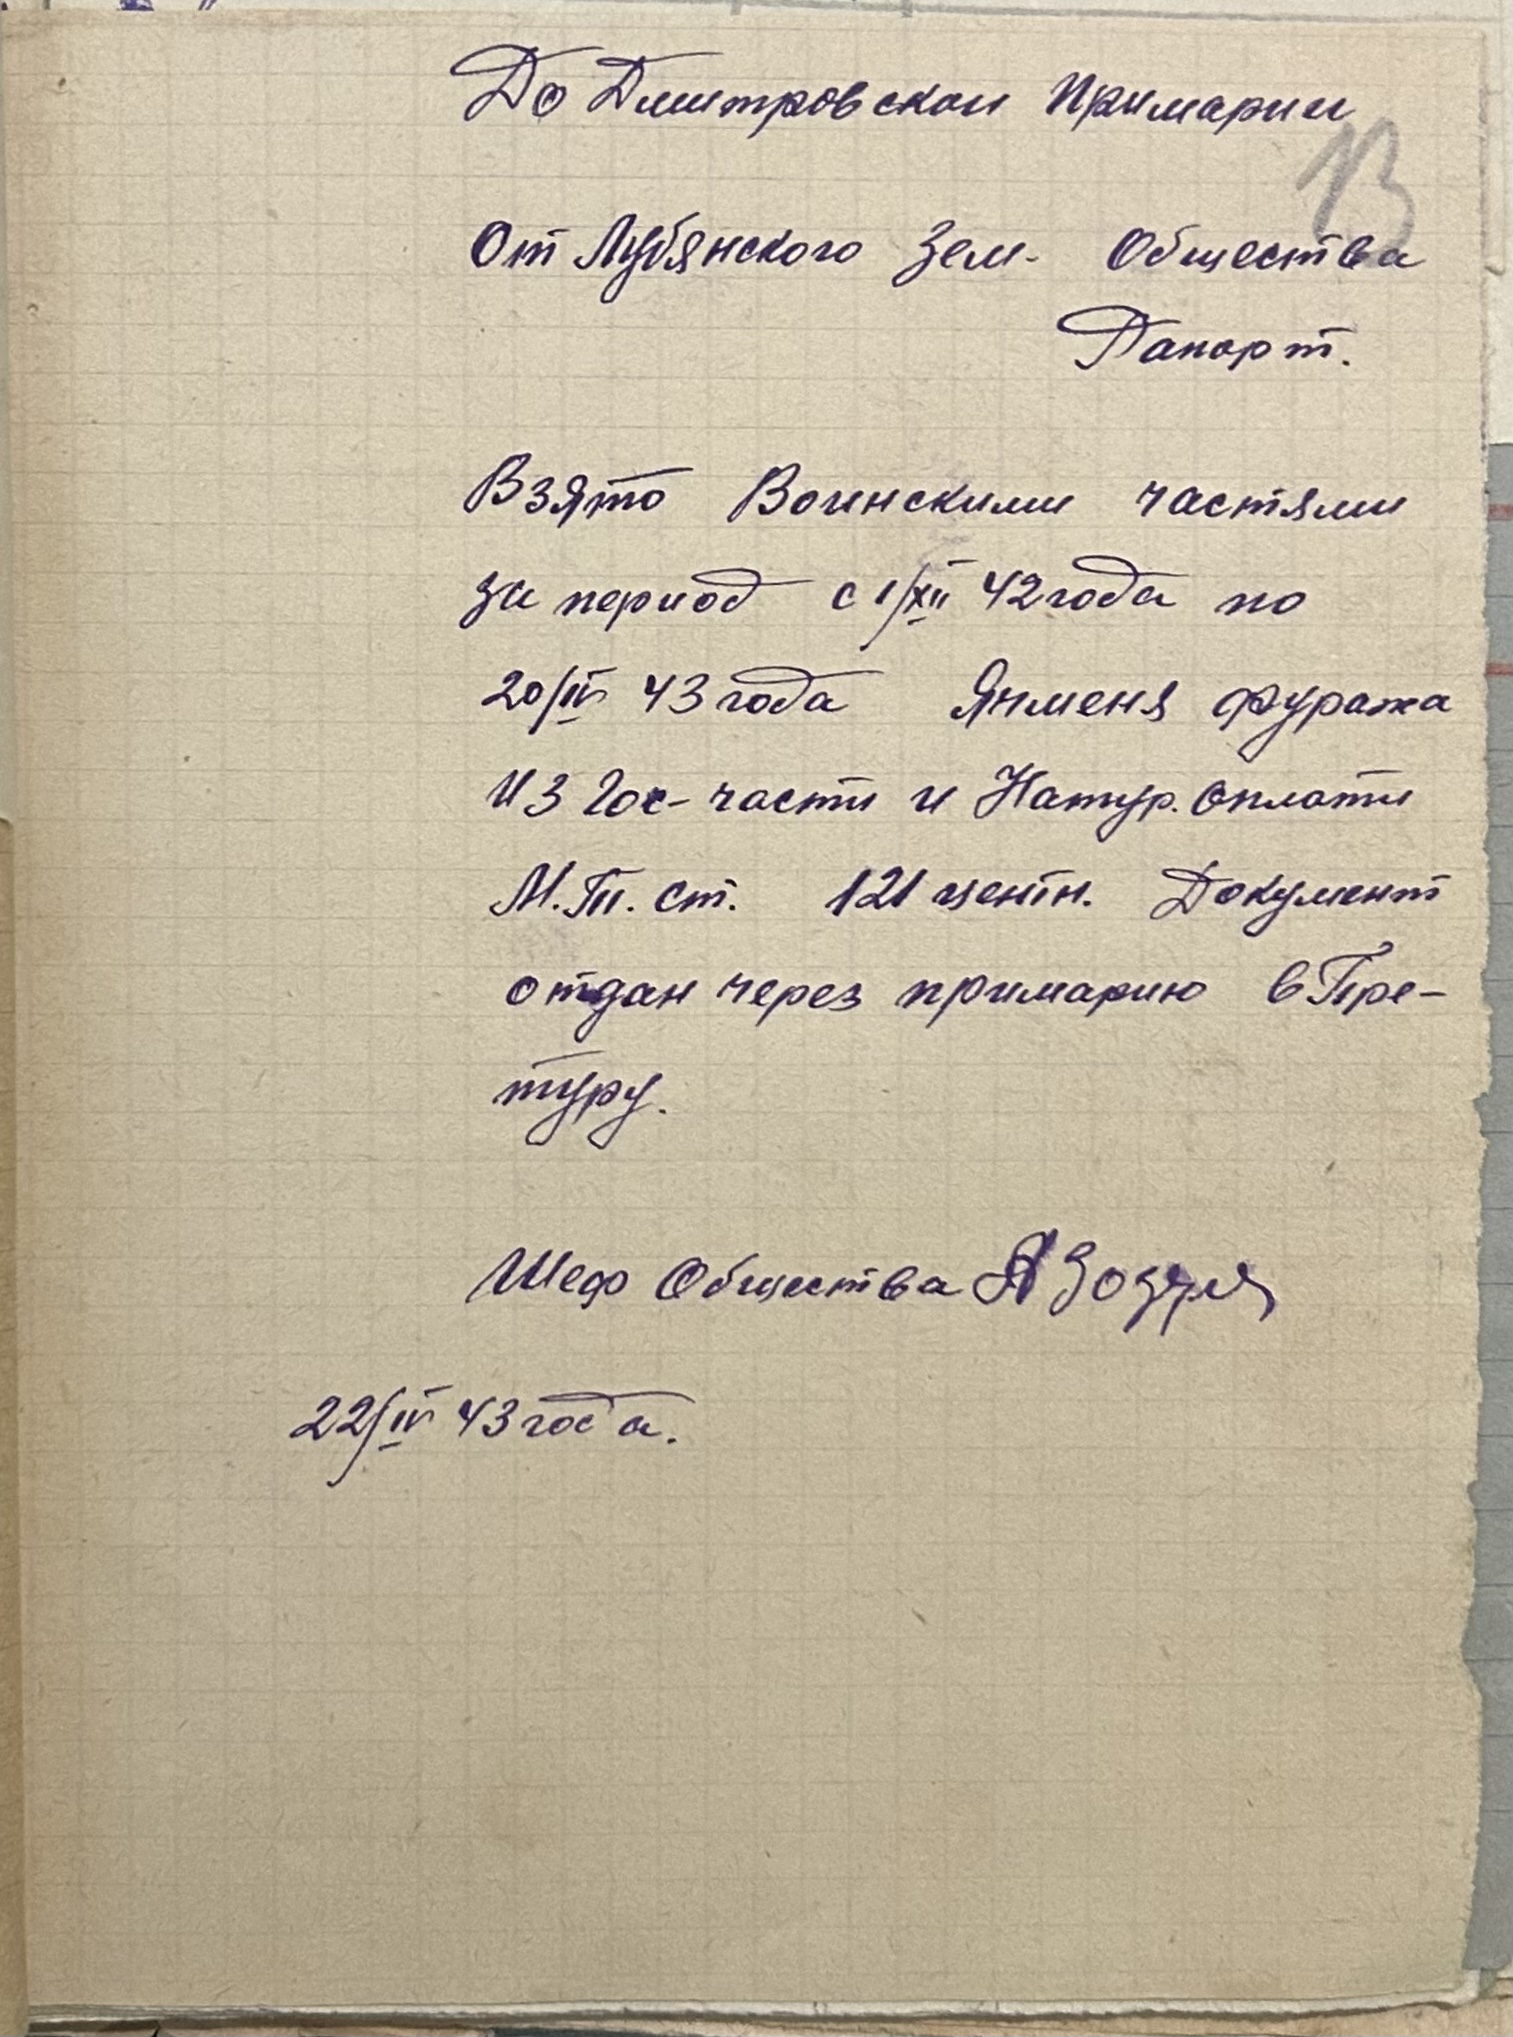 До Дмитровской Примарии
13
От Лубянского Зем- Общества
Рапорт.
Взято Воинскими частями
за период с 1/XII 42 года по
20/IV 43 года Ячменя фуража
из Гос-части и Натур. оплати
М.Т.ст. 121 центн. Документ
отдан через примарию в Пре-
туру.
Шеф Общества
22/IV 43 года.